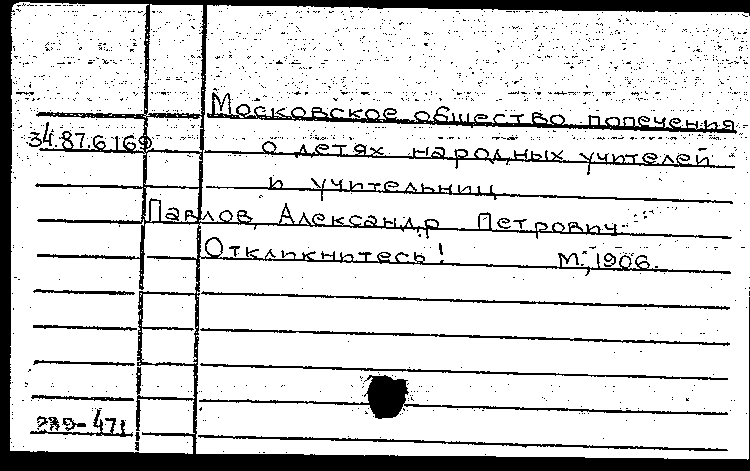 Московское общество попечения
34.87.6.169 о детях народных учителей
и учительниц
Павлов, Александр Петрович
Откликнитесь! М., 1906.
471